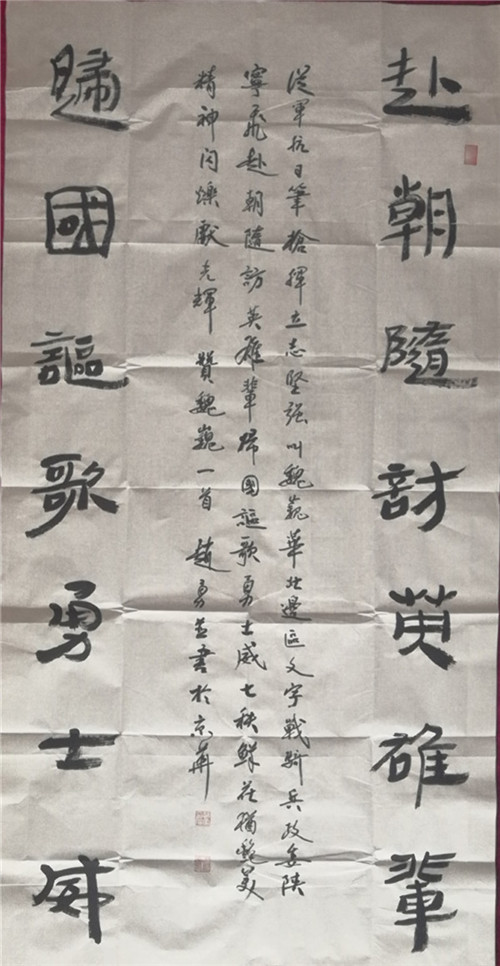 赴朝隨訪英雄輩
從軍抗日筆槍揮立志坚強叫魏巍華北邊區文字戰騎兵政委陝
寧飛赴朝隨訪英雄輩歸國謳歌勇士威七秩鮮花猶艷美
精神闪爍獻光輝 贊魏巍一首 趙勇並書於京華
歸國謳歌勇士威